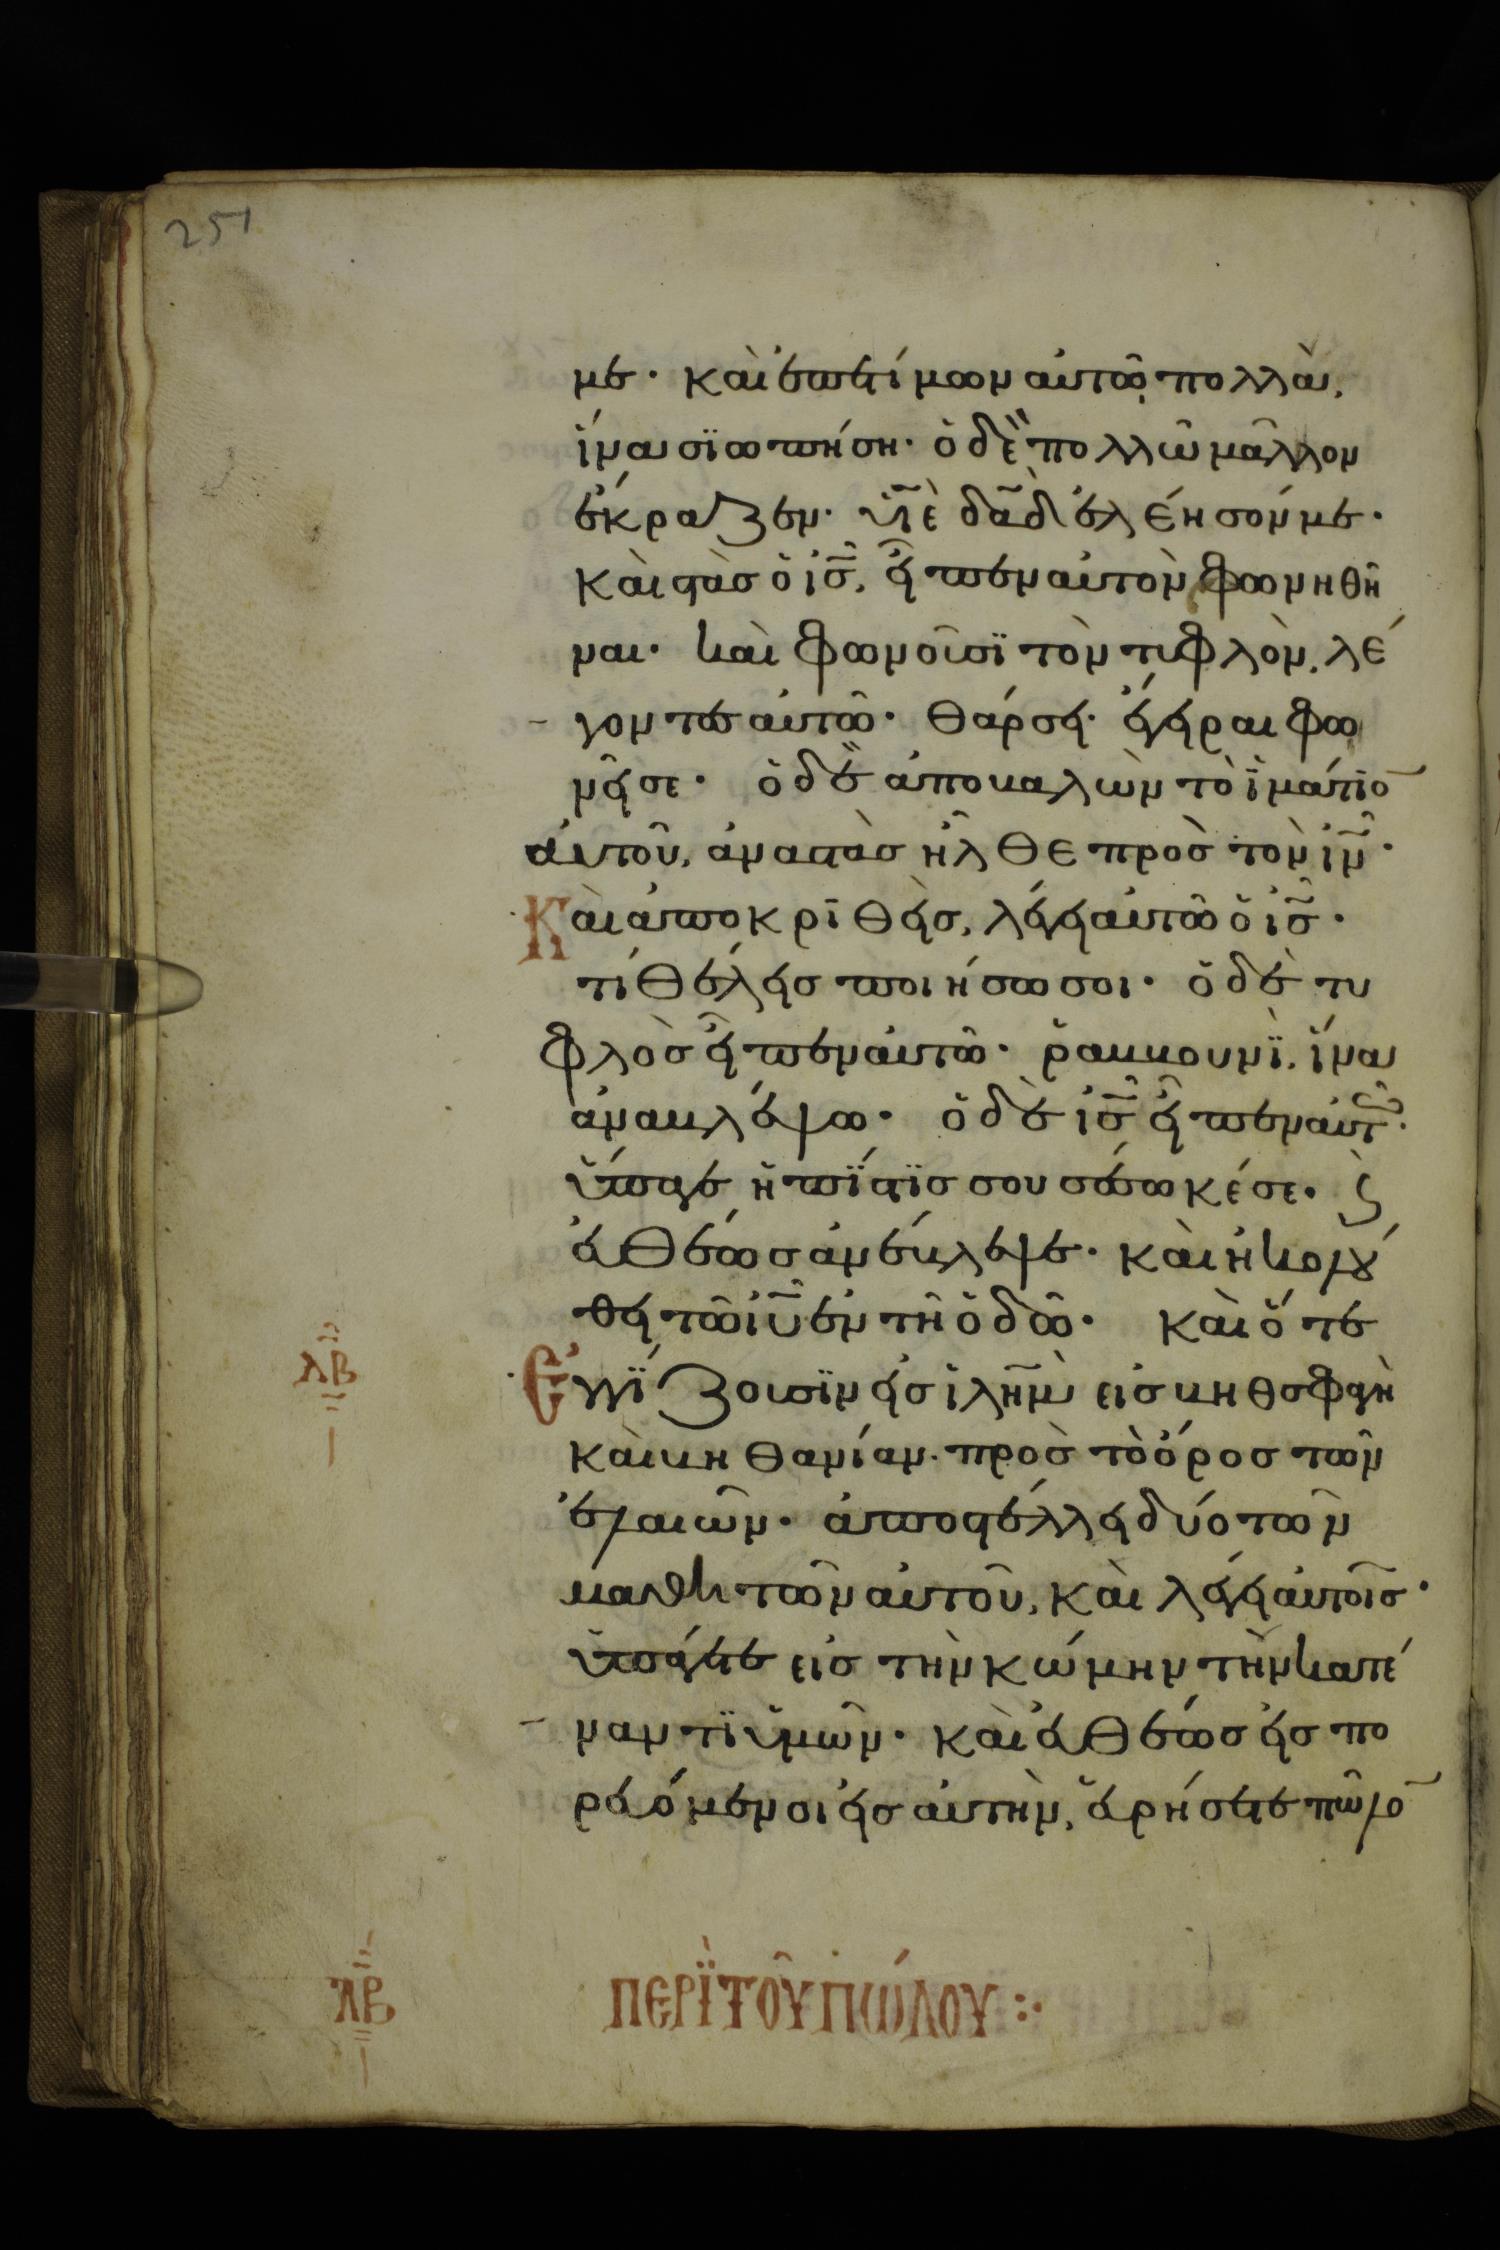 251
με· καὶ ἐπετίμων αὐτῶ πολλὰ,
ἵνα σϊωπήση· ὁ δὲ πολλῶ μᾶλλον
ἔκραζεν· υἱ̅ὲ δα̅δ ἐλέησόν με·
καὶ στὰσ ὁ ἰσ̅, εἶπεν αὐτὸν φωνηθῆ
ναι· καὶ φωνοῦσϊ τὸν τυφλὸν, λέ
γοντεσ αὐτῶ· θάρσει· ἔγειραι φω
νεῖ σε· ὁ δὲ ἀποβαλὼν τὸ ἱ̈μάτϊο̅
αὐτοῦ, ἀναστὰσ ἦλθε πρὸσ τὸν ἰν̅·
Καὶ ἀποκρϊθεὶσ, λέγει αὐτῶ ὁ ἰσ̅·
τί θέλεισ ποιήσω σοι· ὁ δὲ τυ
φλὸσ εἶπεν αὐτῶ· ῥαββουνϊ, ἵνα
ἀναβλέψω· ὁ δὲ ἰσ̅ εἶπεν αὐτ̅·
ὕπαγε ἡ πίστϊσ σου σέσωκέ σε· ϛ̀
εὐθέωσ ἀνέβλεψε· καὶ ἠκολού
θει τῶ ἰυ̅ ἐν τῆ ὁδῶ· καὶ ὅτε
Ἐγγίζουσϊν εἰσ ἱλη̅μ εἰσ βηθσφαγὴ
καὶ βηθανίαν· πρὸσ τὸ ὄροσ τῶν
ἐλαιῶν· ἀποστέλλει δύο τῶν
μαθητῶν αὐτοῦ, καὶ λέγει αὐτοῖσ·
ὑπάγετε εἰσ τὴν κώμην τὴν κατέ
ναντϊ ὑμῶν· καὶ εὐθέωσ εἰσπο
ρευόμενοι εἰσ αὐτὴν, εὑρήσετε πῶλο̅
λβ
λβ
ΠΕΡΪ ΤΟΥ͂ ΠΏΛΟΥ